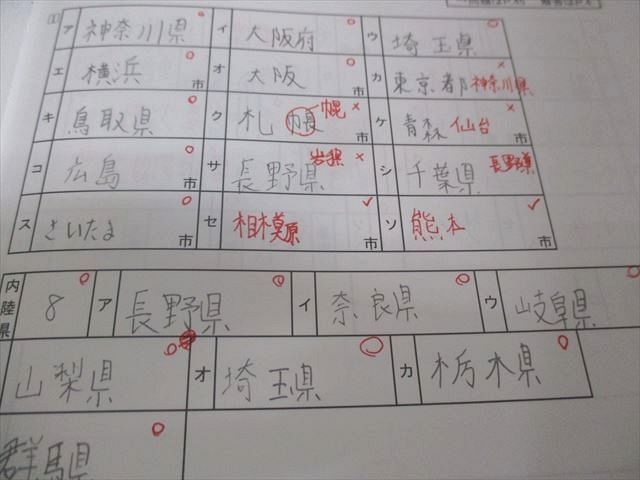 (1) ア 神奈川県 イ 大阪府 ウ 埼玉県
エ 横浜 市 オ 大阪 市 カ 東京都 神奈川県
キ 鳥取県 ク 札幌 幌 市 ケ 青森 仙台 市
コ 広島 市 サ 長野県 シ 千葉県 長野県
ス さいたま 市 セ 相模原 市 ソ 熊本 市
内陸県 8 ア 長野県 イ 奈良県 ウ 岐阜県
山梨県 オ 埼玉県 カ 栃木県
群馬県